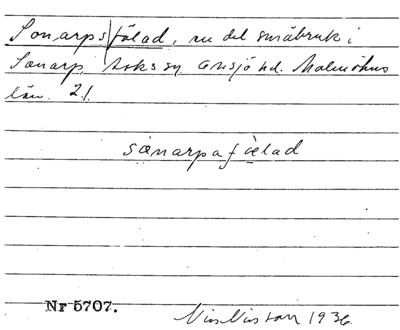 Sonarps|fälad, en del småbruk i
Sonarp, Loks sn Onsjö hd. Malmöhus
län. 21.
sɷnarpafɛ̀lad
Nr 5707.
Nils Nilsson 1936.